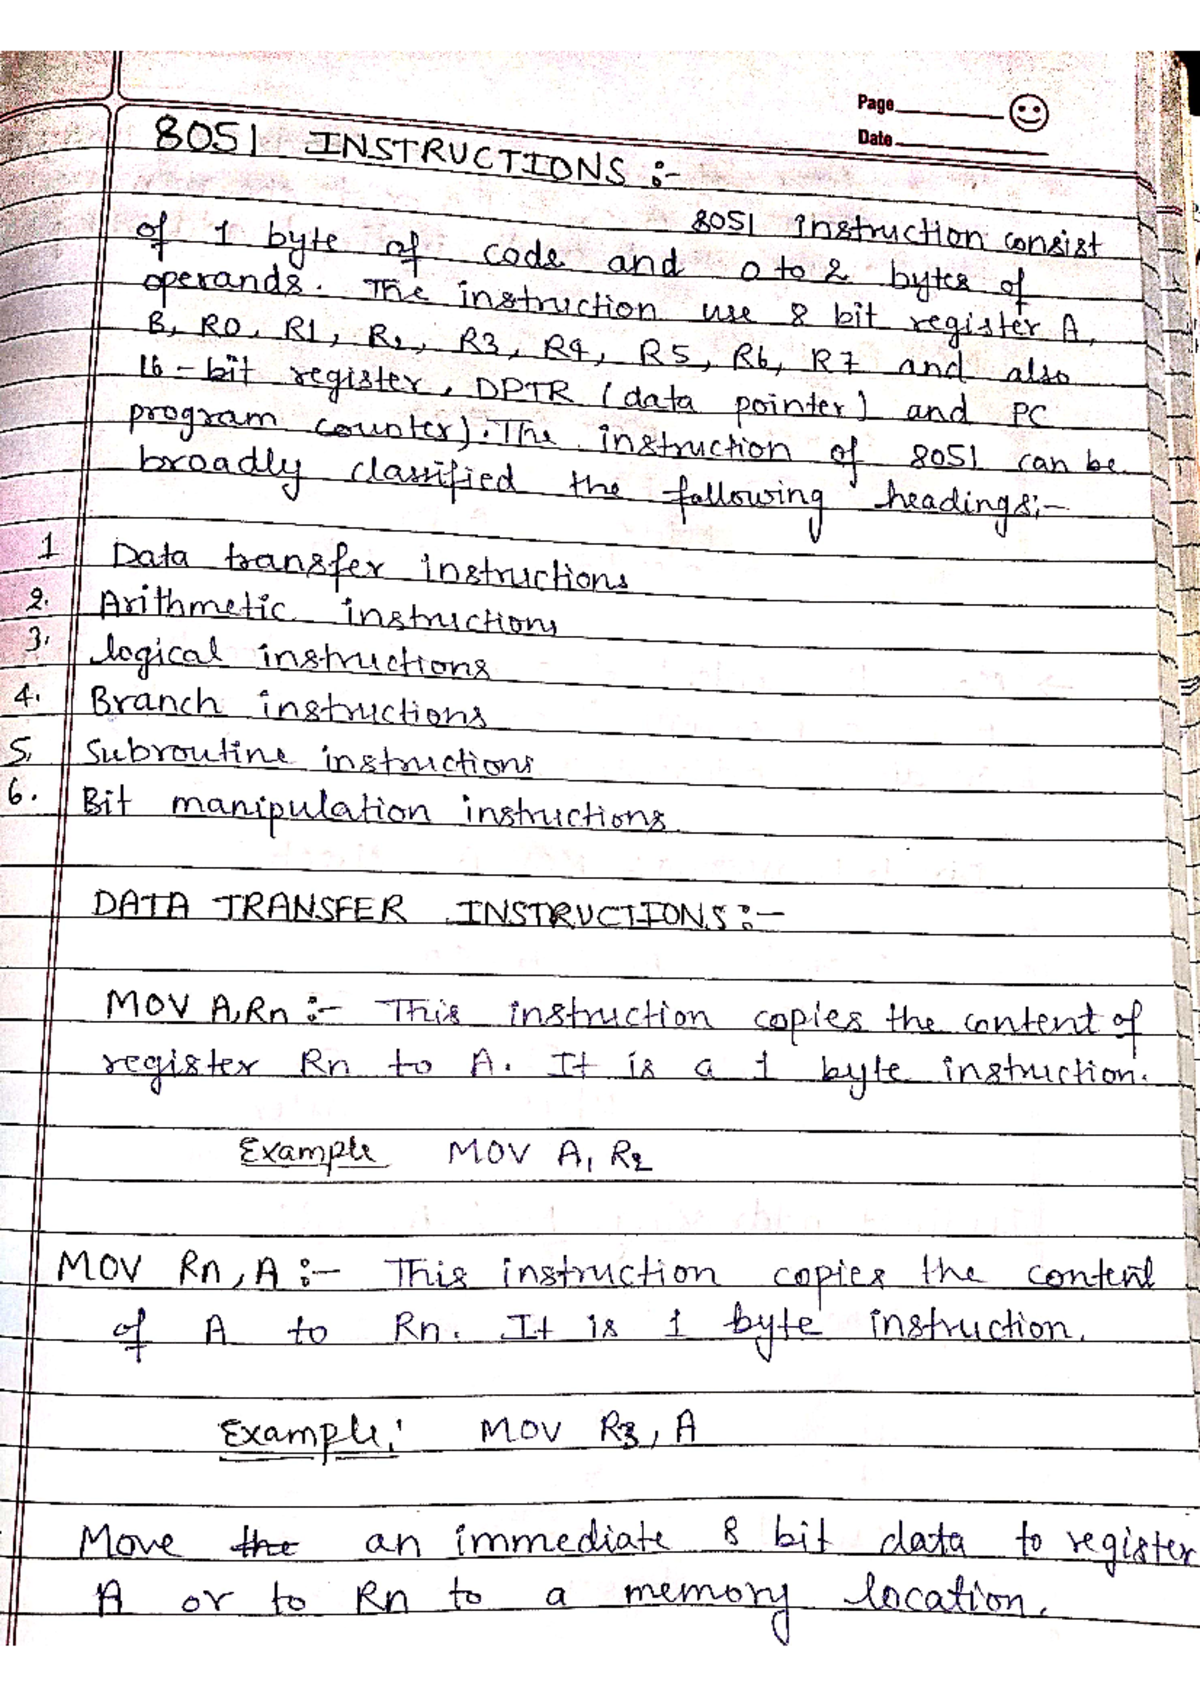 Page
Date
8051 INSTRUCTIONS :-
8051 instruction consist
of 1 byte of code and 0 to 2 bytes of
operands. The instruction use 8 bit register A,
B, R0, R1, R2, R3, R4, R5, R6, R7 and also
16-bit register, DPTR (data pointer) and PC
program counter). The instruction of 8051 can be
broadly classified the following headings:-
1 Data transfer instructions
2. Arithmetic instructions
3. logical instructions
4. Branch instructions
5. Subroutine instructions
6. Bit manipulation instructions
DATA TRANSFER INSTRUCTIONS :-
MOV A,Rn :- This instruction copies the content of
register Rn to A. It is a 1 byte instruction.
Example MOV A, R2
MOV Rn, A :- This instruction copies the content
of A to Rn. It is 1 byte instruction.
Example: MOV R3, A
Move the an immediate 8 bit data to register
A or to Rn to a memory location.